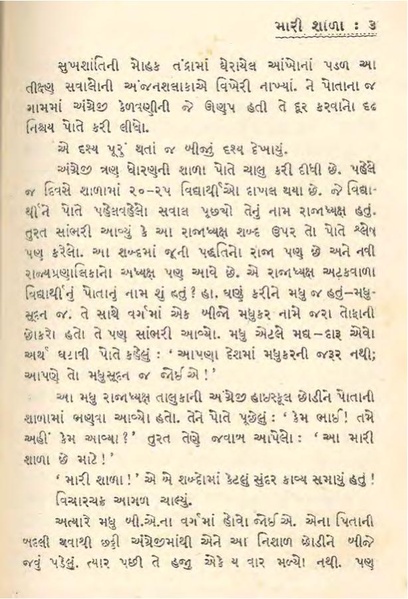 મારી શાળા : ૩
સુખશાંતિની મોહક તંદ્રામાં ઘેરાયેલ આંખોનાં પડળ આ
તીક્ષ્ણ સવાલોની અંજનશલાકાએ વિખેરી નાખ્યાં. ને પોતાના જ
ગામમાં અંગ્રેજી કેળવણીની જે ઊણપ હતી તે દૂર કરવાનો દૃઢ
નિશ્ચય પોતે કરી લીધો.
એ દૃશ્ય પૂરું થતાં જ બીજું દૃશ્ય દેખાયું.
અંગ્રેજી ત્રણ ધોરણની શાળા પોતે ચાલુ કરી દીધી છે. પહેલે
જ દિવસે શાળામાં ૨૦-૨૫ વિદ્યાર્થીઓ દાખલ થયા છે. જે વિદ્યા-
ર્થીને પોતે પહેલવહેલો સવાલ પૂછ્યો તેનું નામ રાજાધ્યક્ષ હતું.
તુરત સાંભરી આવ્યું કે આ રાજાધ્યક્ષ શબ્દ ઉપર તો પોતે શ્લેષ
પણ કરેલો. આ શબ્દમાં જૂની પદ્ધતિનો રાજા પણ છે અને નવી
રાજ્યપ્રણાલિકાનો અધ્યક્ષ પણ આવે છે. એ રાજાધ્યક્ષ અટકવાળા
વિદ્યાર્થીનું પોતાનું નામ શું હતું? હા. ઘણું કરીને મધુ જ હતું-મધુ-
સૂદન જ. તે સાથે વર્ગમાં એક બીજો મધુકર નામે જરા તોફાની
છોકરો હતો તે પણ સાંભરી આવ્યો. મધુ એટલે મદ્ય-દારૂ એવો
અર્થ ઘટાવી પોતે કહેલું : ‘ આપણા દેશમાં મધુકરની જરૂર નથી;
આપણે તો મધુસૂદન જ જોઈએ !’
આ મધુ રાજાધ્યક્ષ તાલુકાની અંગ્રેજી હાઇસ્કૂલ છોડીને પોતાની
શાળામાં ભણવા આવ્યો હતો. તેને પોતે પૂછેલું : ‘ કેમ ભાઈ! તમે
અહીં કેમ આવ્યા ?’ તુરત તેણે જવાબ આપેલો : ‘ આ મારી
શાળા છે માટે !’
‘ મારી શાળા !’ એ બે શબ્દોમાં કેટલું સુંદર કાવ્ય સમાયું હતું !
વિચારચક્ર આગળ ચાલ્યું.
અત્યારે મધુ બી.એ.ના વર્ગમાં હોવો જોઈએ. એના પિતાની
બદલી થવાથી છઠ્ઠી અંગ્રેજીમાંથી એને આ નિશાળ છોડીને બીજે
જવું પડેલું. ત્યાર પછી તે હજી એકે ય વાર મળ્યો નથી. પણ